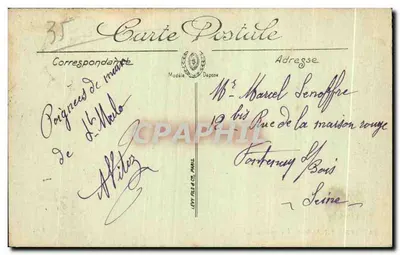 35
Carte Postale
Correspondance
Adresse
Modèle Déposé
Poignées de main
de St Malo
APitez
Mr Marcel Lenoffre
12 bis Rue de la maison rouge
Fontenay s/
Bois
Seine
LEVY FILS & CO, PARIS
CPAPHIL